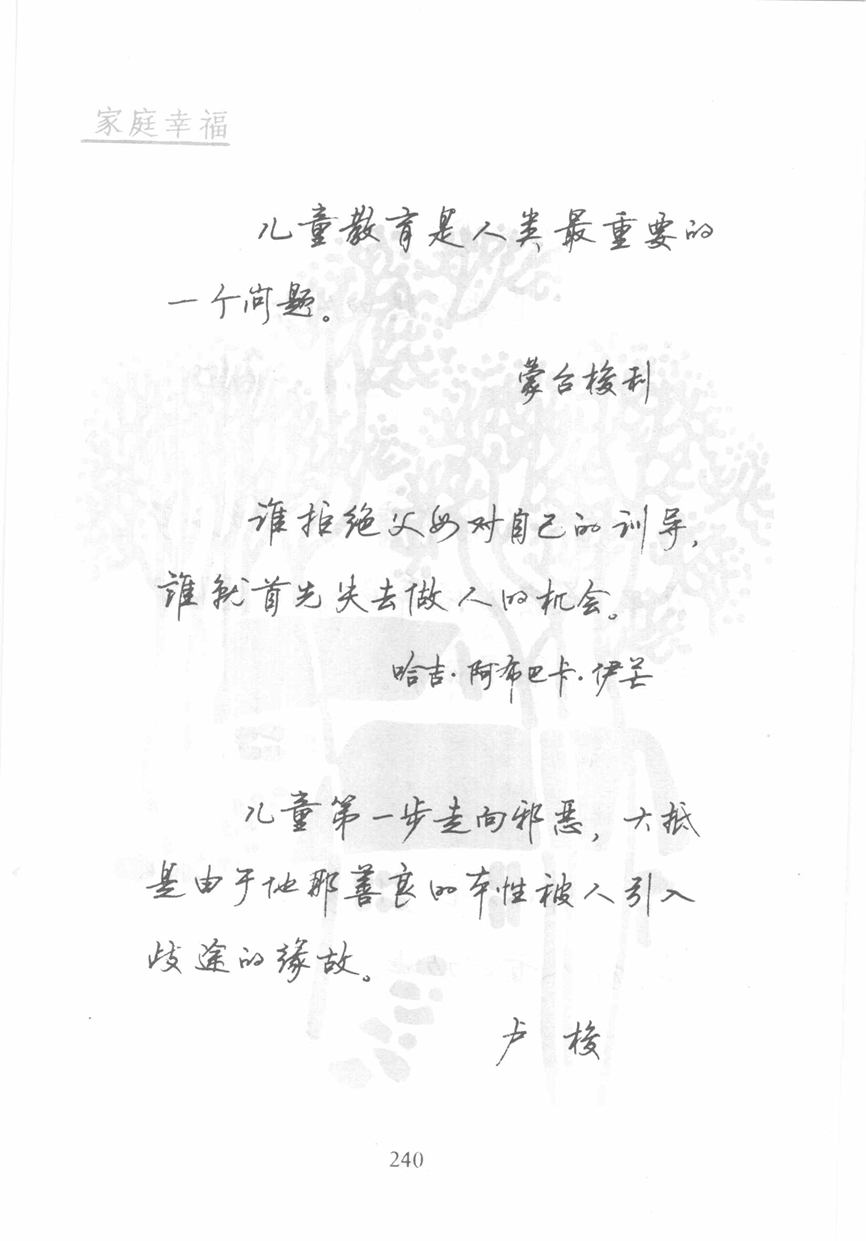 家庭幸福
儿童教育是人类最重要的
一个问题。
蒙台梭利
谁拒绝父母对自己的训导,
谁就首先失去做人的机会。
哈吉·阿布巴卡·伊芒
儿童第一步走向邪恶,大抵
是由于他那善良的本性被人引入
歧途的缘故。
卢 梭
240